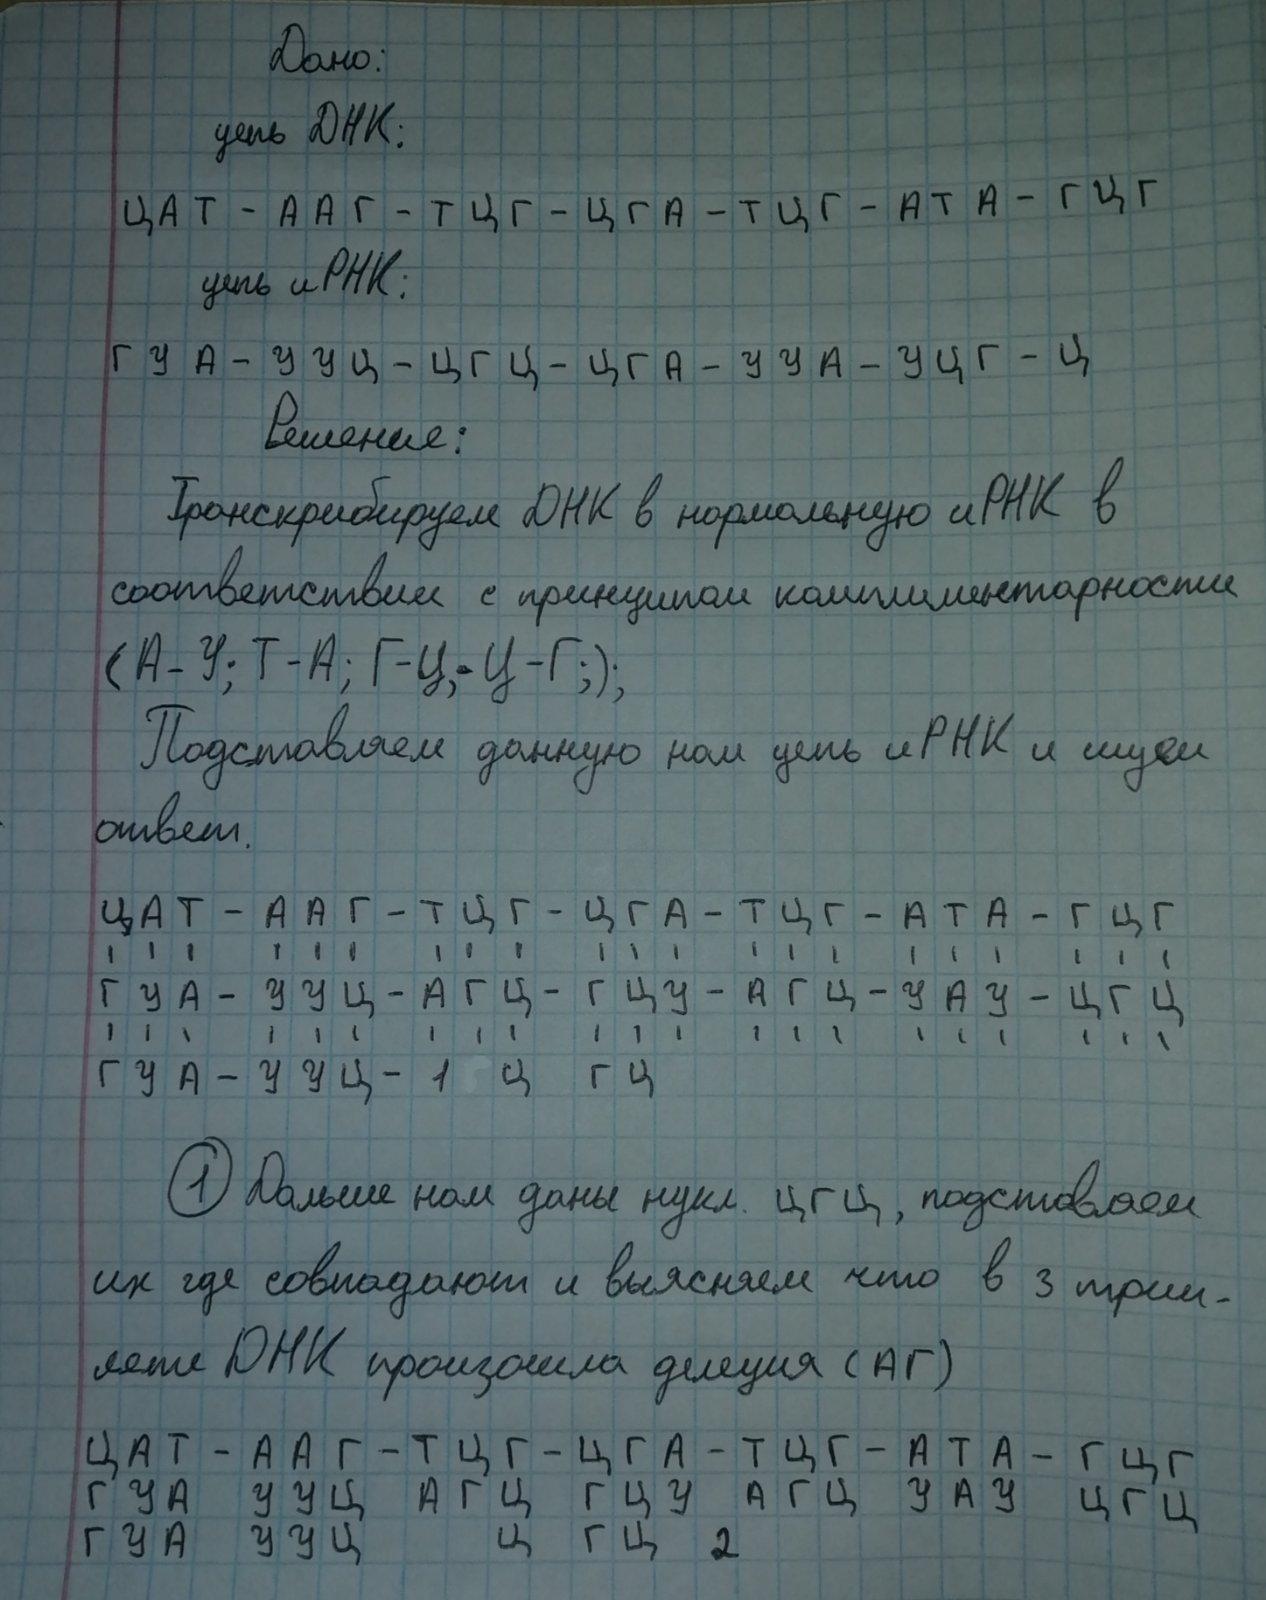 Дано:
цепь ДНК:
ЦАТ - ААГ - ТЦГ - ЦГА - ТЦГ - АТА - ГЦГ
цепь иРНК:
ГУА - УУЦ - ЦГЦ - ЦГА - УУА - УЦГ - Ц
Решение:
Транскрибируем ДНК в нормальную иРНК в
соответствии с принципом комплиментарности
(А-У; Т-А; Г-Ц; Ц-Г;);
Подставляем данную нам цепь иРНК и ищем
ответ.
ЦАТ - ААГ - ТЦГ - ЦГА - ТЦГ - АТА - ГЦГ
ГУА - УУЦ - АГЦ - ГЦУ - АГЦ - УАУ - ЦГЦ
ГУА - УУЦ - 1 Ц ГЦ
1 Дальше нам даны нукл. ЦГЦ, подставляем
их где совпадают и выясняем что в 3 трип-
лете ДНК произошла делеция (АГ)
ЦАТ - ААГ - ТЦГ - ЦГА - ТЦГ - АТА - ГЦГ
ГУА УУЦ АГЦ ГЦУ АГЦ УАУ ЦГЦ
ГУА УУЦ Ц ГЦ 2